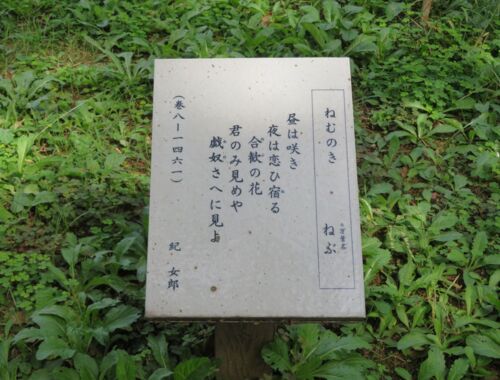 ねむのき・ねぶ
昼は咲き
夜は恋ひ宿る
合歓の花
君のみ見めや
戯奴さへに見よ
(巻八ー一四六一)
紀 女郎